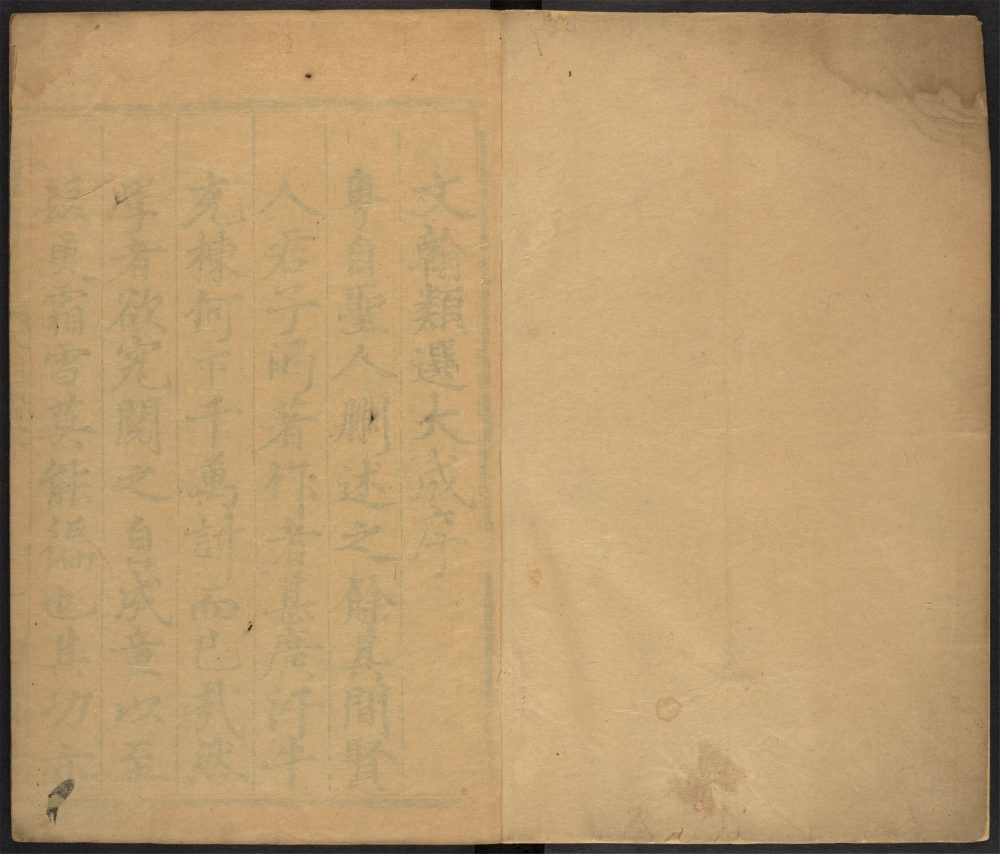 文翰類選大成序
粤自聖人刪述之餘其間賢
人君子所著作者甚廣汗牛
充棟何下千萬計而已哉然
學者欲寃閱之自成童以至
更霜雪莫能徧也其功亦